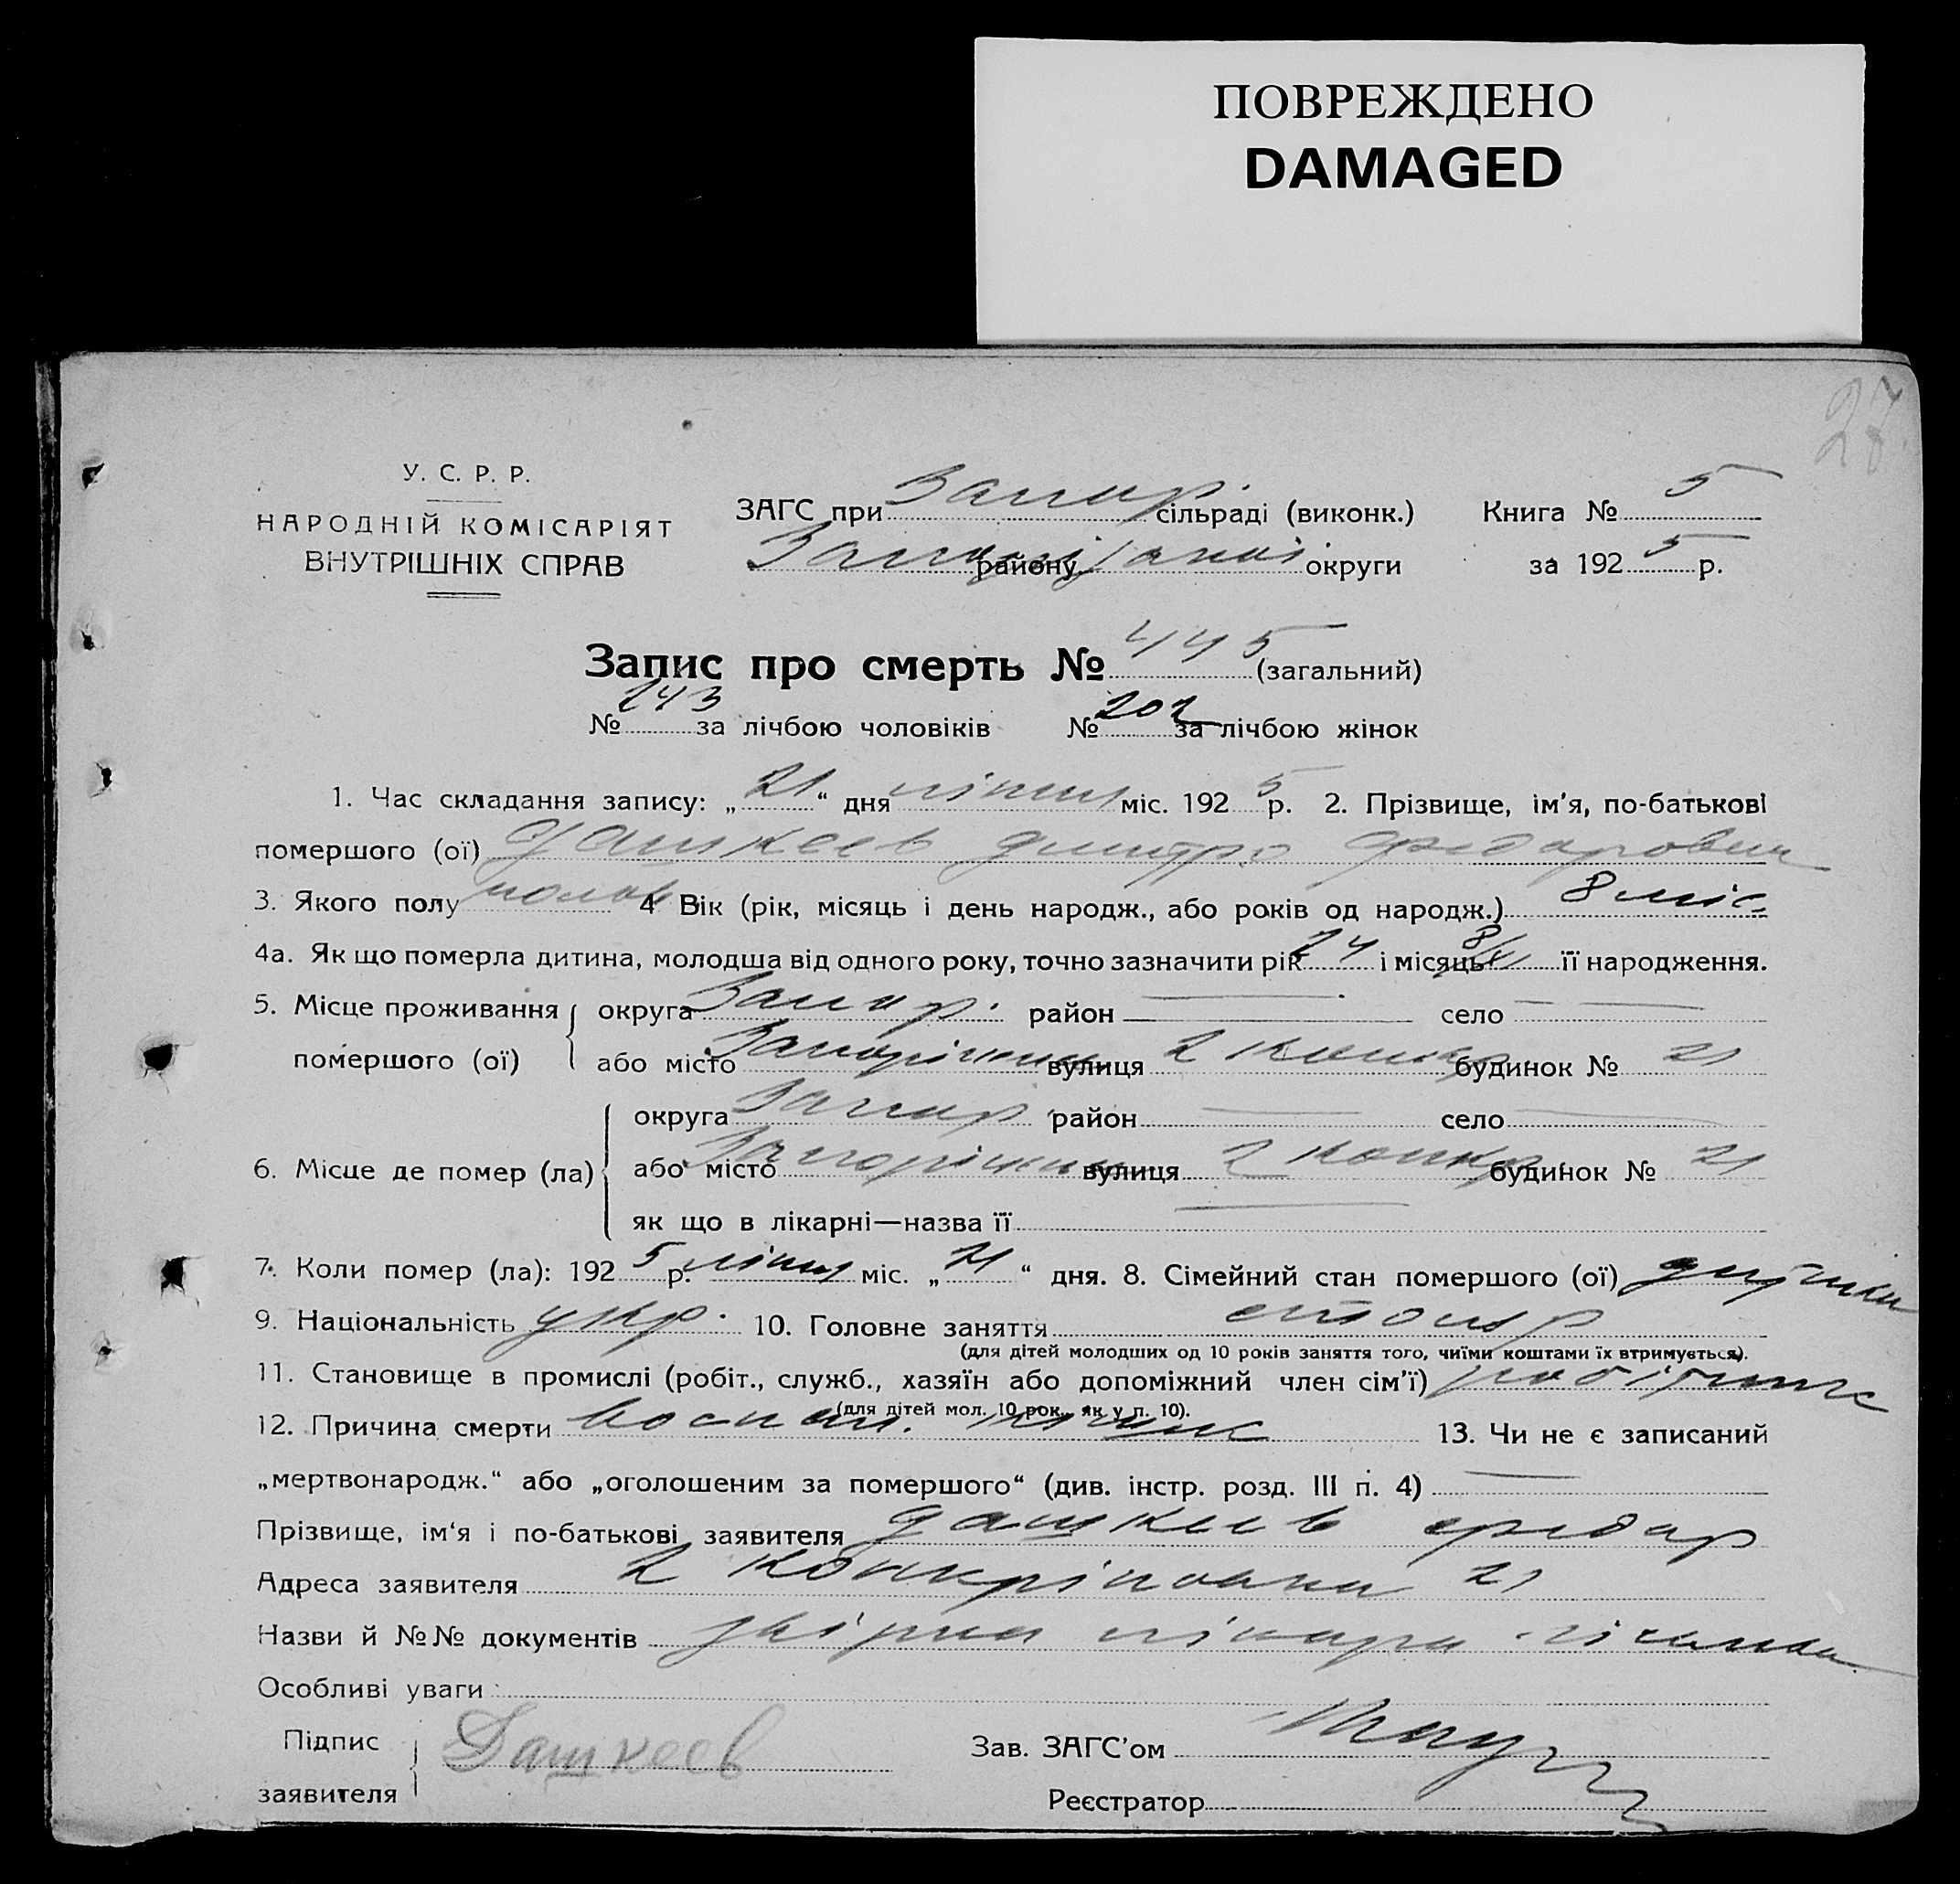 ПОВРЕЖДЕНО
DAMAGED
27.
У. С. Р. Р.
НАРОДНІЙ КОМІСАРІЯТ
ВНУТРІШНІХ СПРАВ
ЗАГС при Запор. сільраді (виконк.)
району округи
Книга № 5
за 1925 р.
Запис про смерть № 445 (загальний)
№ 243 за лічбою чоловіків № 202 за лічбою жінок
1. Час складання запису: „21“ дня липня міс. 1925 р. 2. Прізвище, ім'я, по-батькові
помершого (ої) Дашкеев Дмитро Федорович
3. Якого полу чолов 4 Вік (рік, місяць і день народж., або років од народж.) 8 міс.
4а. Як що померла дитина, молодша від одного року, точно зазначити рік 24 і місяць 8/XI її народження.
5. Місце проживання помершого (ої) { округа Запор. район — село —
або місто Запоріжжя вулиця 2 будинок № 21
6. Місце де помер (ла) { округа Запор. район — село —
або місто Запоріжжя вулиця 2 будинок № 21
як що в лікарні—назва її —
7. Коли помер (ла): 1925 р. липня міс. „21“ дня. 8. Сімейний стан помершого (ої) дитина
9. Національність укр. 10. Головне заняття столяр
(для дітей молодших од 10 років заняття того, чиїми коштами їх втримується).
11. Становище в промислі (робіт., служб., хазяїн або допоміжний член сім'ї) робітник
(для дітей мол. 10 рок., як у п. 10).
12. Причина смерти воспал. 13. Чи не є записаний
„мертвонародж.“ або „оголошеним за помершого“ (див. інстр. розд. III п. 4) —
Прізвище, ім'я і по-батькові заявителя Дашкеев Федор
Адреса заявителя 2 21
Назви й №№ документів лікаря
Особливі уваги
Підпис заявителя } Дашкеев
Зав. ЗАГС'ом
Реєстратор